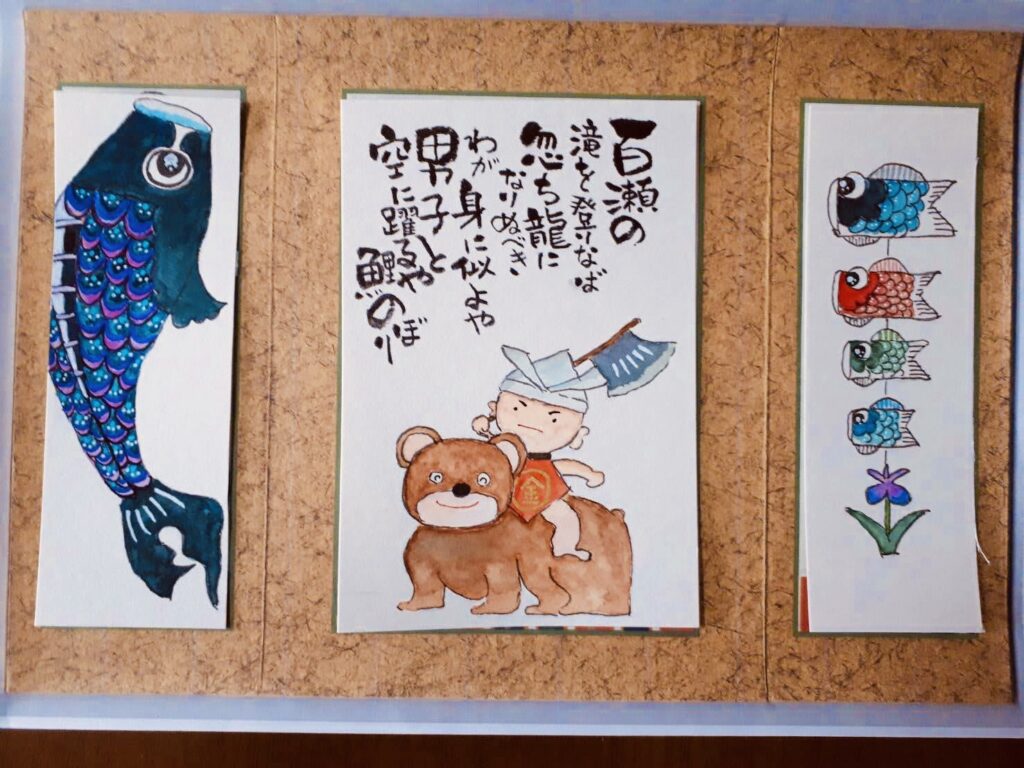 百瀬の
滝を登りなば
忽ち龍に
なりぬべき
わが身に似よや
男子と
空に躍るや
鯉のぼり
金